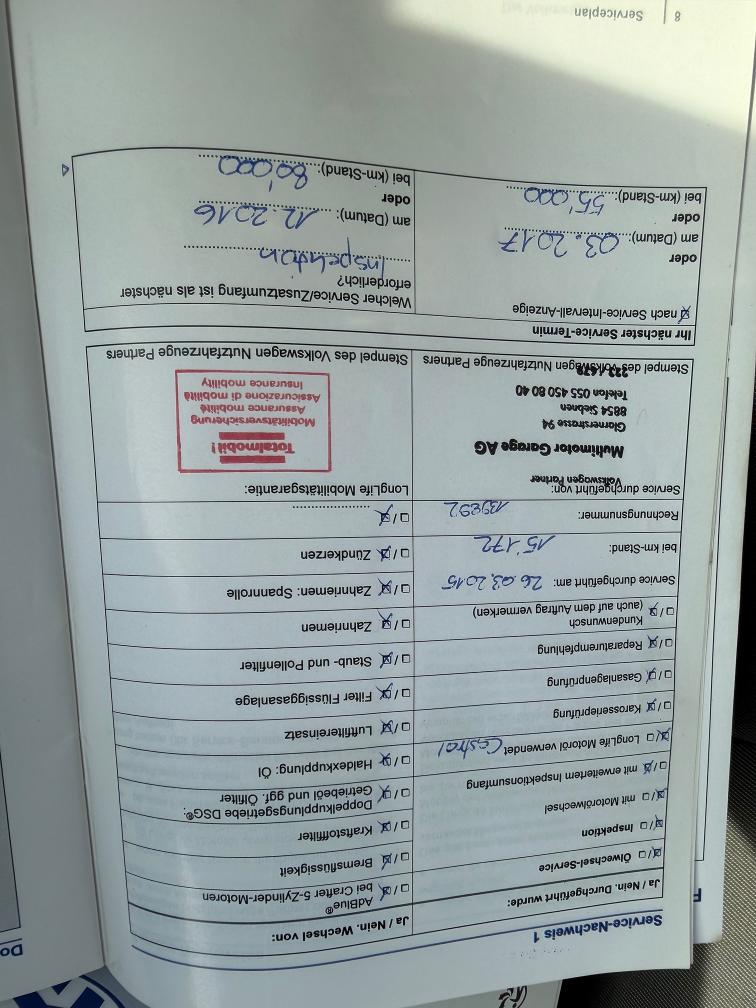 Service-Nachweis 1
Ja / Nein. Durchgeführt wurde:
☒ / ☐ Ölwechsel-Service
☒ / ☐ Inspektion
☒ / ☐ mit Motorölwechsel
☐ / ☒ mit erweitertem Inspektionsumfang
☒ / ☐ LongLife Motoröl verwendet Castrol
☐ / ☒ Karosserieprüfung
☐ / ☒ Gasanlagenprüfung
☐ / ☒ Reparaturempfehlung
☐ / ☒ Kundenwunsch
(auch auf dem Auftrag vermerken)
Service durchgeführt am: 26.03.2015
bei km-Stand: 15'172
Rechnungsnummer:
Service durchgeführt von:
Volkswagen Partner
Multimotor Garage AG
Glarnerstrasse 94
8854 Siebnen
Telefon 055 450 80 40
Stempel des Volkswagen Nutzfahrzeuge Partners
Ja / Nein. Wechsel von:
☐ / ☒ AdBlue®
bei Crafter 5-Zylinder-Motoren
☐ / ☒ Bremsflüssigkeit
☐ / ☒ Kraftstofffilter
☐ / ☒ Doppelkupplungsgetriebe DSG®:
Getriebeöl und ggf. Ölfilter
☐ / ☒ Haldexkupplung: Öl
☐ / ☒ Luftfiltereinsatz
☐ / ☒ Filter Flüssiggasanlage
☐ / ☒ Staub- und Pollenfilter
☐ / ☒ Zahnriemen
☐ / ☒ Zahnriemen: Spannrolle
☐ / ☒ Zündkerzen
☐ / ☒ ....................
LongLife Mobilitätsgarantie:
Totalmobil!
Mobilitätsversicherung
Assurance mobilité
Assicurazione di mobilità
Insurance mobility
Stempel des Volkswagen Nutzfahrzeuge Partners
Ihr nächster Service-Termin
☒ nach Service-Intervall-Anzeige
oder
am (Datum): 03.2017
oder
bei (km-Stand): 55'000
Welcher Service/Zusatzumfang ist als nächster
erforderlich?
Inspektion
am (Datum): 12.2016
oder
bei (km-Stand): 60'000
8 | Serviceplan
Do
F